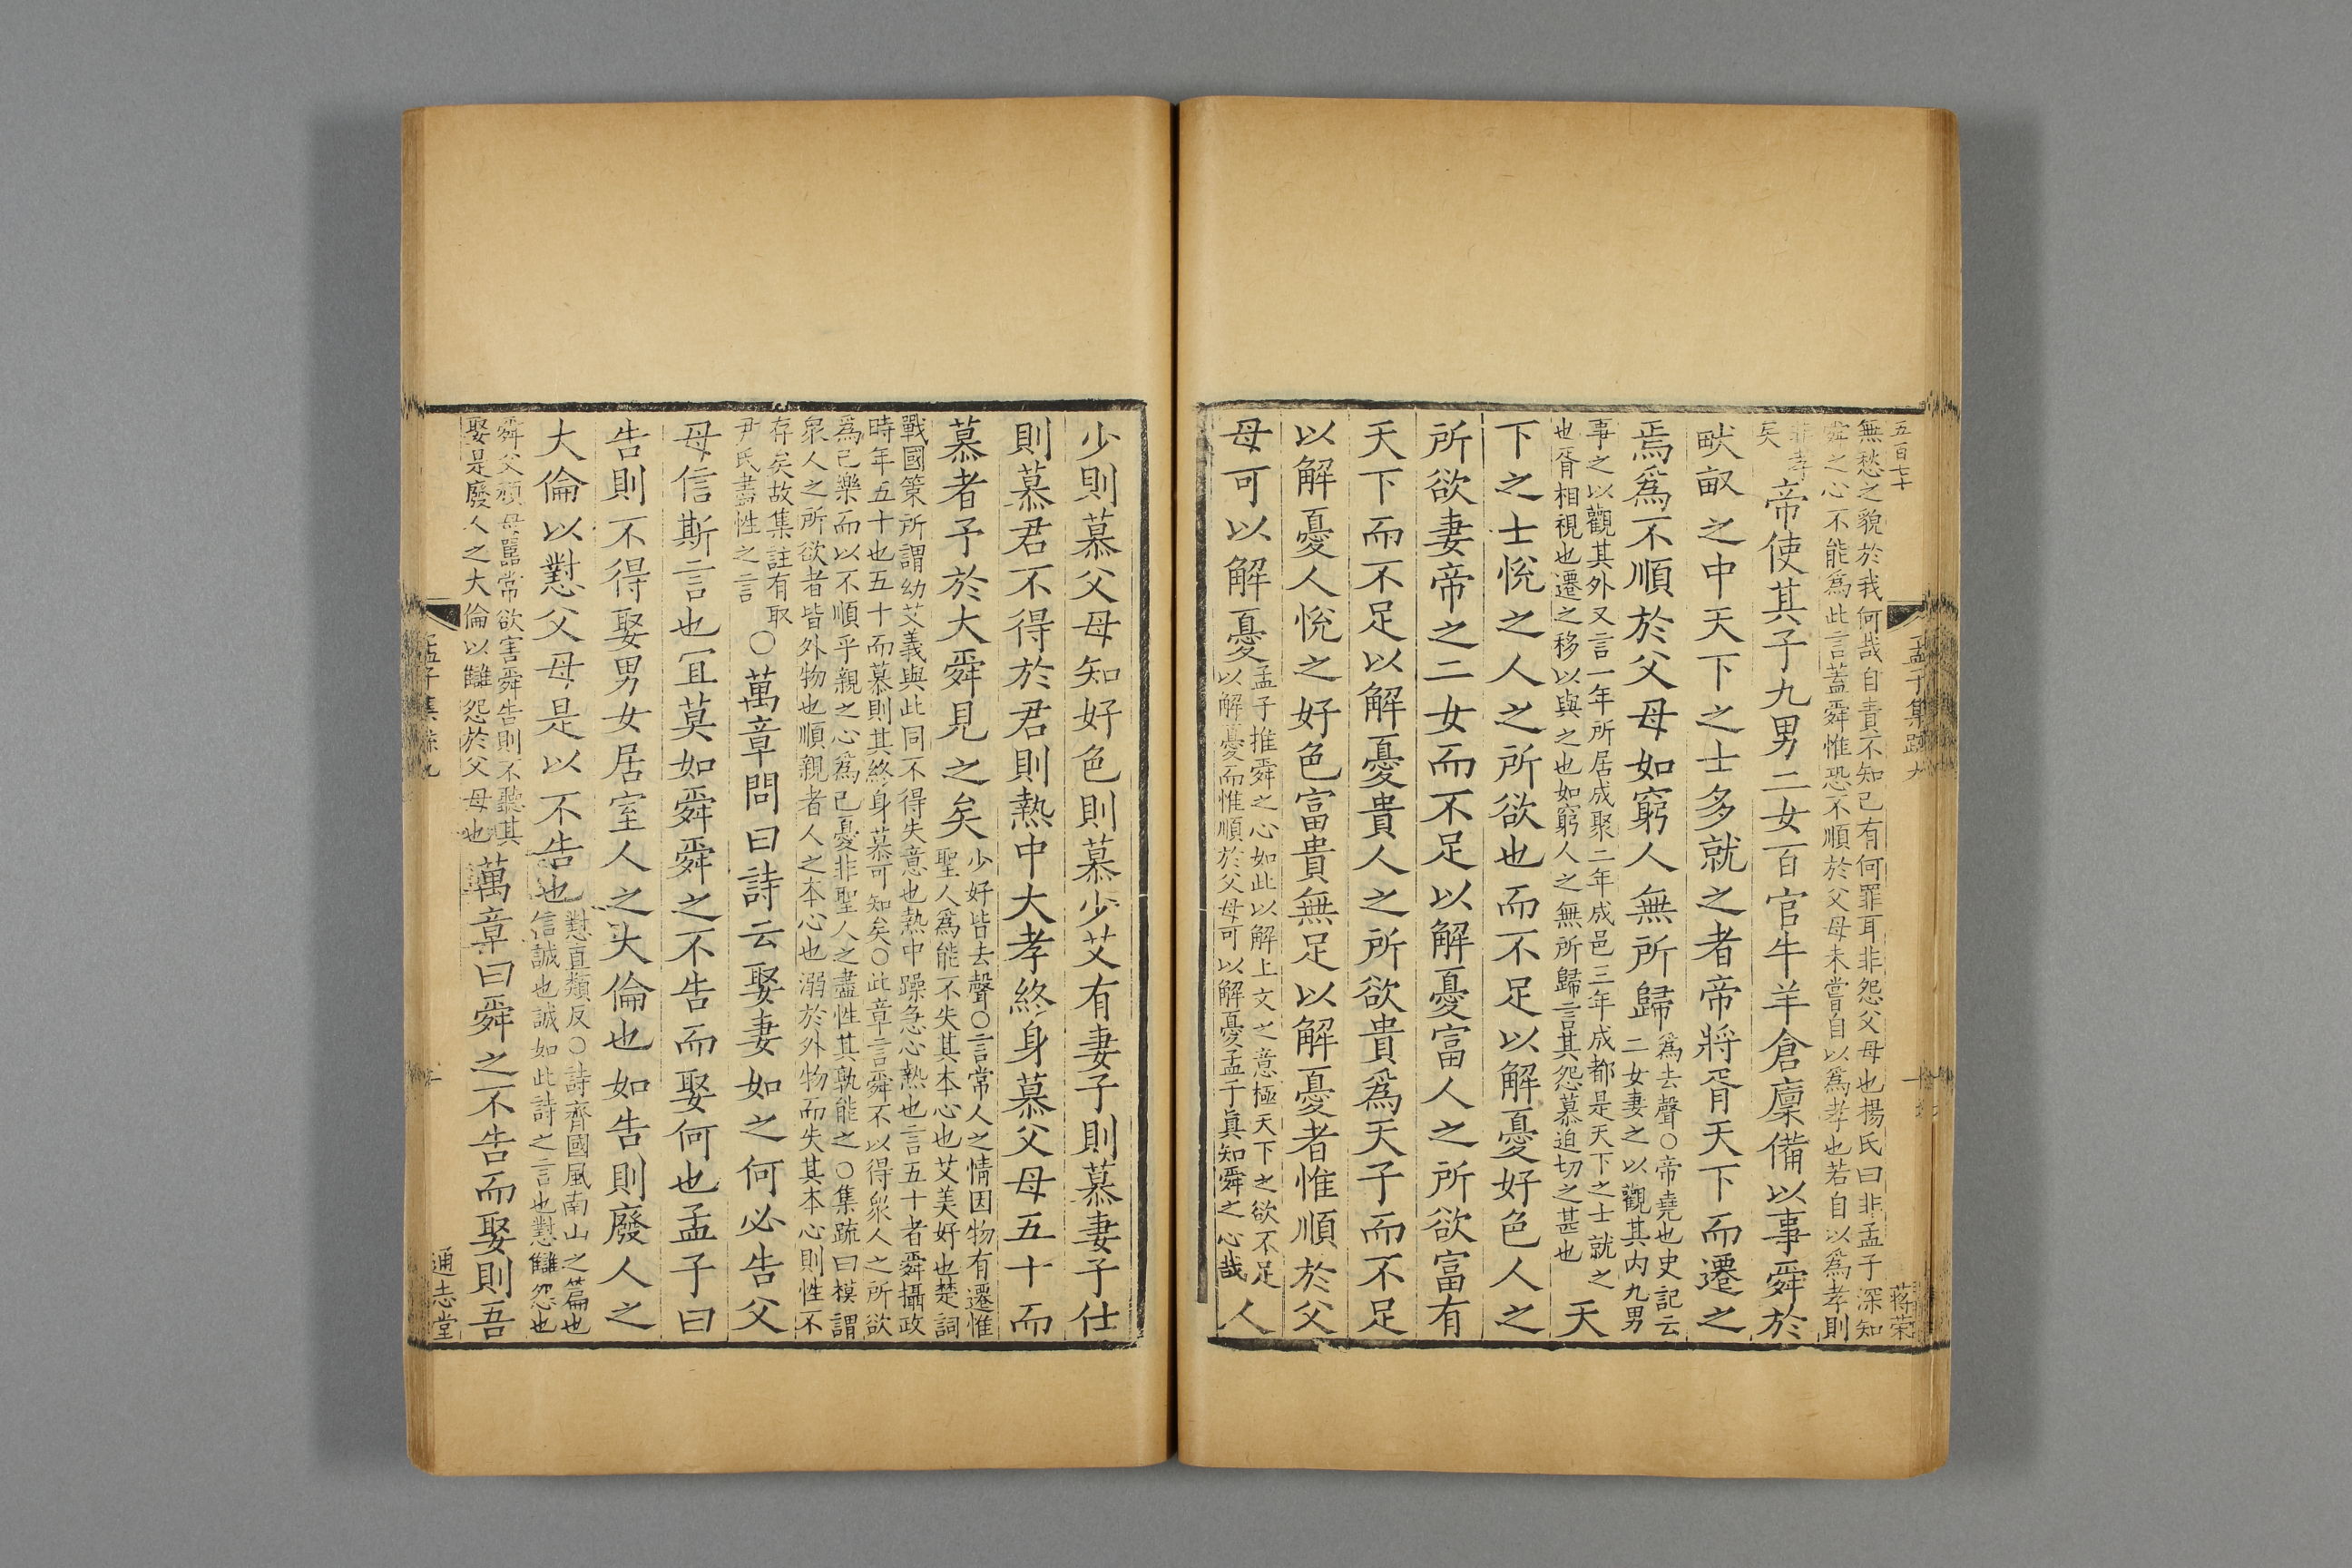 五百七十
孟子集疏九
蒋荣
無愁之貌於我何哉自責不知己有何罪耳非怨父母也楊氏曰非孟子深知
舜之心不能爲此言蓋舜惟恐不順於父母未嘗自以爲孝也若自以爲孝則
非孝
矣
帝使其子九男二女百官牛羊倉廩備以事舜於
畎畝之中天下之士多就之者帝將胥天下而遷之
焉爲不順於父母如窮人無所歸
爲去聲〇帝堯也史記云
二女妻之以觀其内九男
事之以觀其外又言一年所居成聚二年成邑三年成都是天下之士就之
也胥相視也遷之移以與之也如窮人之無所歸言其怨慕迫切之甚也
天
下之士悅之人之所欲也而不足以解憂好色人之
所欲妻帝之二女而不足以解憂富人之所欲富有
天下而不足以解憂貴人之所欲貴爲天子而不足
以解憂人悅之好色富貴無足以解憂者惟順於父
母可以解憂
孟子推舜之心如此以解上文之意極天下之欲不足
以解憂而惟順於父母可以解憂孟子眞知舜之心哉
人
少則慕父母知好色則慕少艾有妻子則慕妻子仕
則慕君不得於君則熱中大孝終身慕父母五十而
慕者予於大舜見之矣
少好皆去聲〇言常人之情因物有遷惟
聖人爲能不失其本心也艾美好也楚詞
戰國策所謂幼艾義與此同不得失意也熱中躁急心熱也言五十者舜攝政
時年五十也五十而慕則其終身慕可知矣〇此章言舜不以得衆人之所欲
爲己樂而以不順乎親之心爲己憂非聖人之盡性其孰能之〇集疏曰模謂
衆人之所欲者皆外物也順親者人之本心也溺於外物而失其本心則性不
存矣故集註有取
尹氏盡性之言
〇萬章問曰詩云娶妻如之何必告父
母信斯言也宜莫如舜舜之不告而娶何也孟子曰
告則不得娶男女居室人之大倫也如告則廢人之
大倫以懟父母是以不告也
懟直類反〇詩齊國風南山之篇也
信誠也誠如此詩之言也懟讎怨也
舜父頑母嚚常欲害舜告則不聽其
娶是廢人之大倫以讎怨於父母也
萬章曰舜之不告而娶則吾
孟子集疏九
通志堂